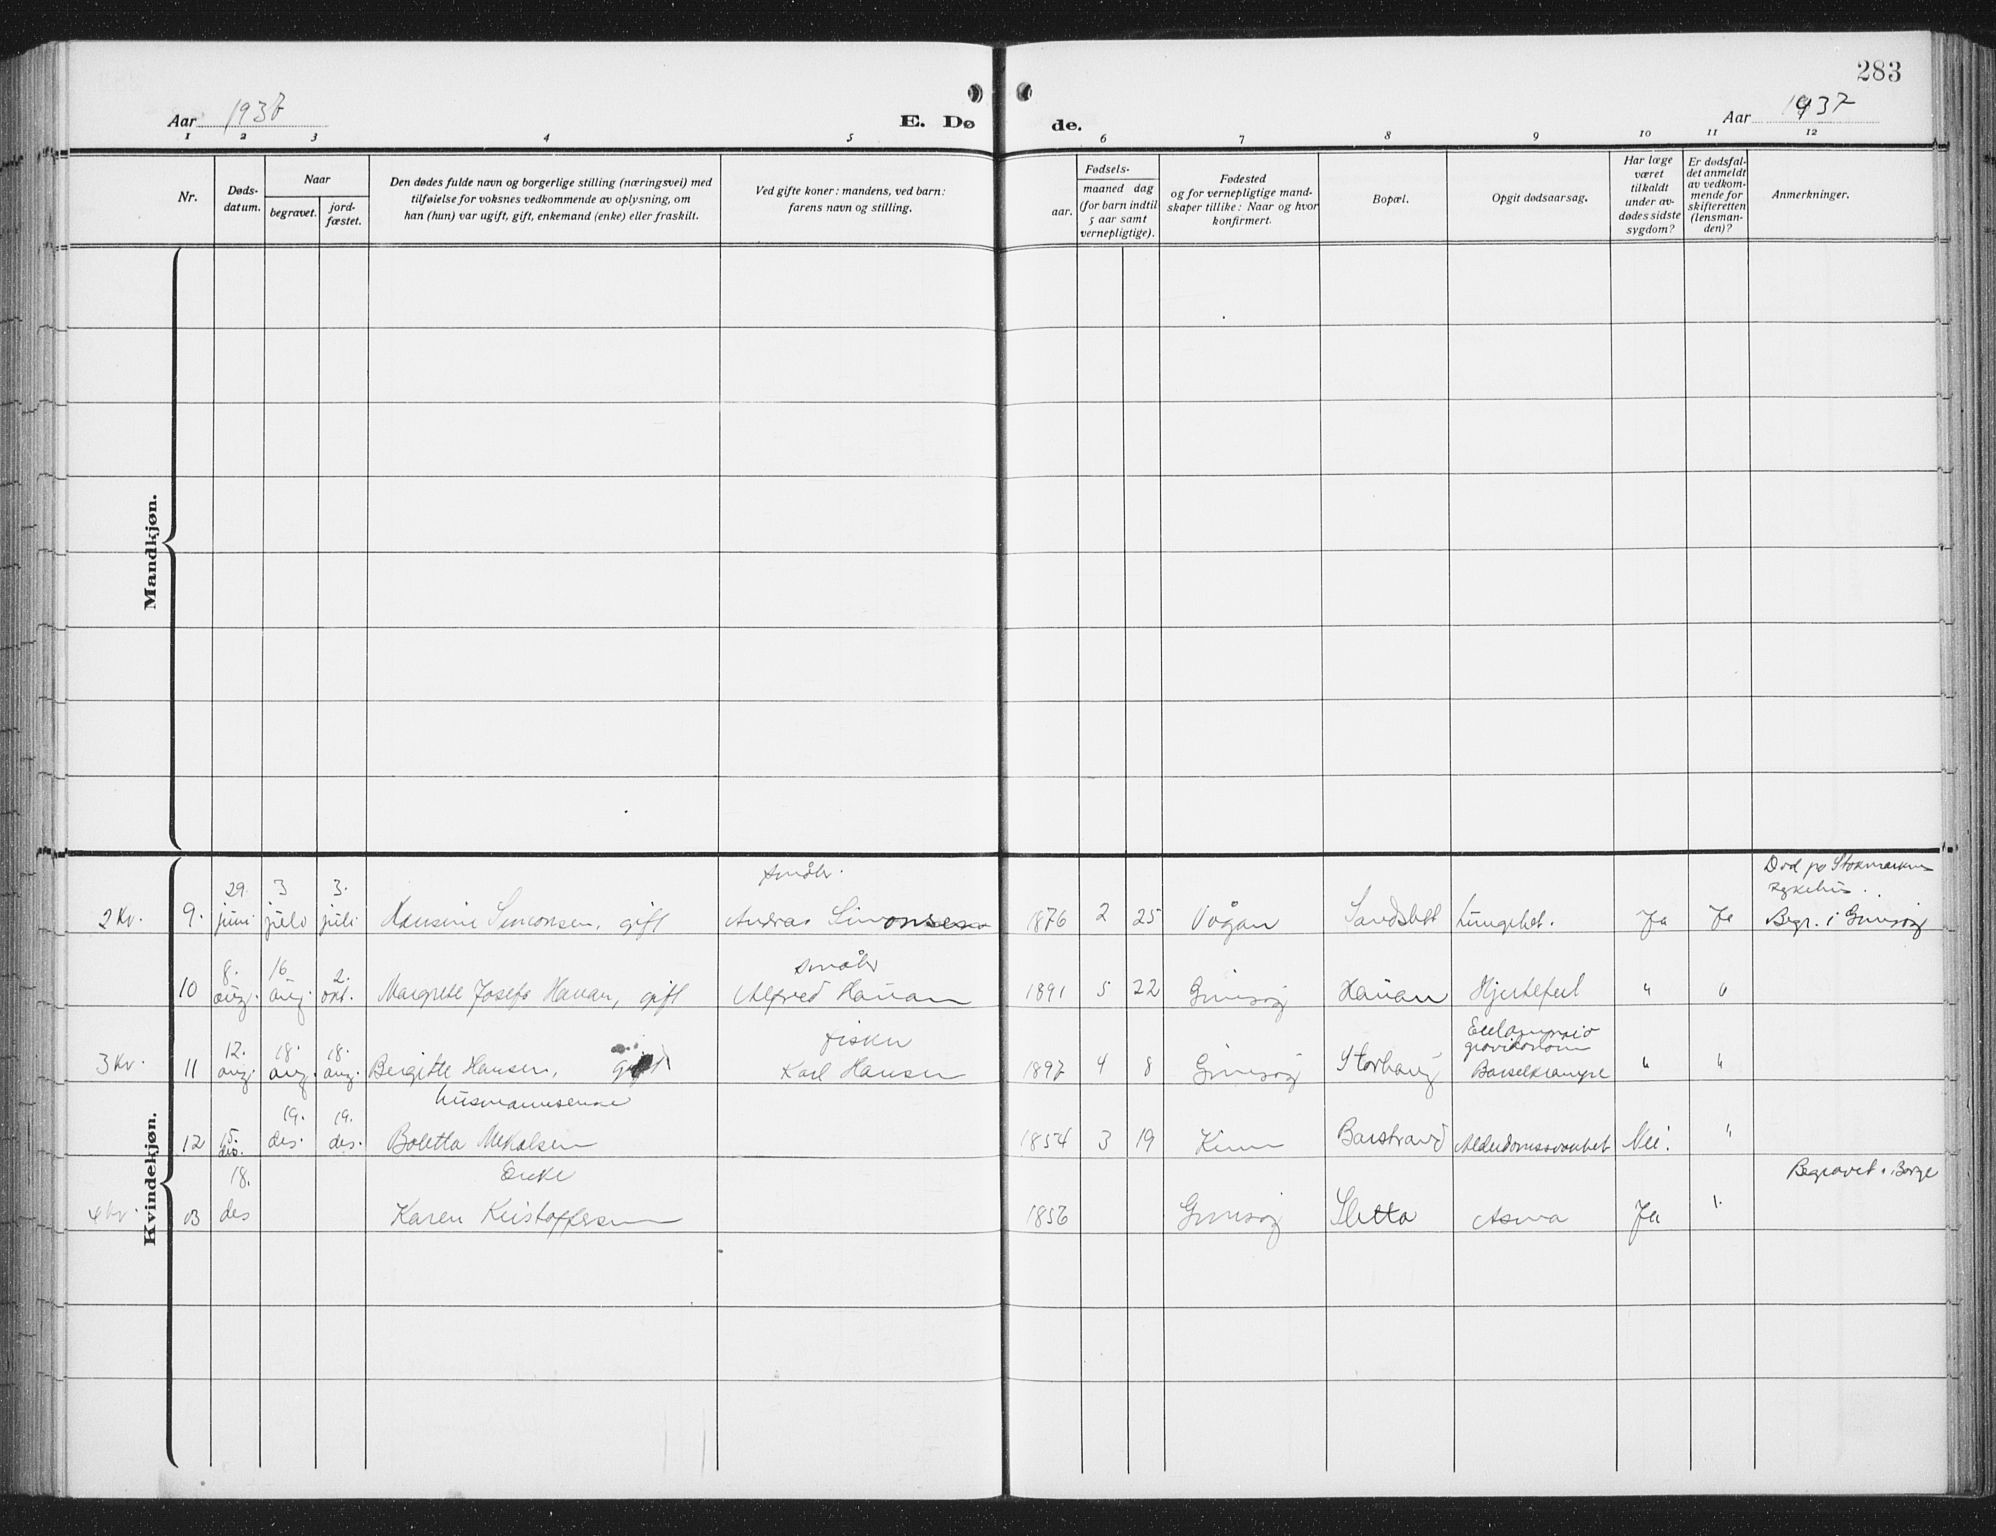 283
Aar 1937
E. Dø
de.
Aar 1937
1 2 3 4 5 6 7 8 9 10 11 12
Nr.
Døds-
datum.
Naar
begravet.
jord-
fæstet.
Den dødes fulde navn og borgerlige stilling (næringsvei) med
tilføielse for voksnes vedkommende av oplysning, om
han (hun) var ugift, gift, enkemand (enke) eller fraskilt.
Ved gifte koner: mandens, ved barn:
farens navn og stilling.
Fødsels-
aar.
maaned dag
(for barn indtil
5 aar samt
vernepligtige).
Fødested
og for vernepligtige mand-
skaper tillike: Naar og hvor
konfirmert.
Bopæl.
Opgit dødsaarsag.
Har læge
været
tilkaldt
under av-
dødes sidste
sygdom?
Er dødsfal-
det anmeldt
av vedkom-
mende for
skifteretten
(lensman-
den)?
Anmerkninger.
Mandkjøn.
Kvindekjøn.
29. 3 3. småbr. Død på Stokmarknes
sykehus.
2 Kv. 9. juni juli juli Hansine Simonsen, gift Andreas Simonsen 1876 2 25 Vågan Sandslett Lungebet. Ja Ja Begr. i Gimsøy
8. 16 2. småbr
10 aug. aug. okt. Margrete Josefa Hauan, gift Alfred Hauan 1891 5 22 Gimsøy Hauan Hjertefeil " "
12. 18. 18. fisker Eclampsia
gravidarum
3 Kv. 11 aug. aug. aug. Birgitte Hansen, gift Karl Hansen 1897 4 8 Gimsøy Storhaug Barselkrampe " "
19. 19. husmannsenke
12 15. des. des. des. Boletta Mikalsen 1854 3 19 Kinn Barstrand Alderdomssvakhet Nei. "
18. Enke Begravet i Borge
4 kv. 13 des Karen Kristoffersen 1856 Gimsøy Sletta Asma Ja "